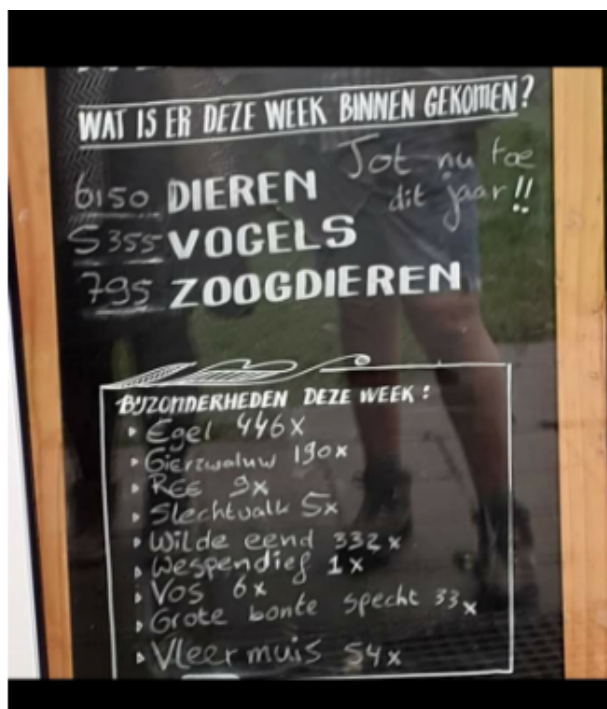 WAT IS ER DEZE WEEK BINNEN GEKOMEN?
Tot nu toe
dit jaar!!
6150 DIEREN
5355 VOGELS
795 ZOOGDIEREN
BIJZONDERHEDEN DEZE WEEK:
Egel 446x
Gierzwaluw 190x
REE 9x
Slechtvalk 5x
Wilde eend 332x
Wespendief 1x
Vos 6x
Grote bonte specht 33x
Vleermuis 54x